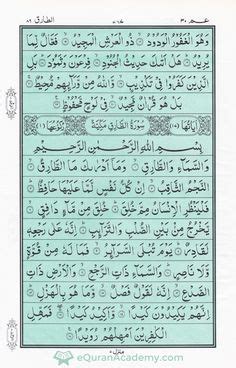 عم ٣٠ الطارق ٨٦
وَهُوَ الْغَفُوْرُ الْوَدُوْدُ ۙ ذُو الْعَرْشِ الْمَجِيْدُ ۙ فَعَّالٌ لِّمَا
يُرِيْدُ ؕ هَلْ اَتٰىكَ حَدِيْثُ الْجُنُوْدِ ۙ فِرْعَوْنَ وَثَمُوْدَ ؕ بَلِ
الَّذِيْنَ كَفَرُوْا فِيْ تَكْذِيْبٍ ۙ وَّاللّٰهُ مِنْ وَّرَآئِهِمْ مُّحِيْطٌ ۚ
بَلْ هُوَ قُرْاٰنٌ مَّجِيْدٌ ۙ فِيْ لَوْحٍ مَّحْفُوْظٍ
اٰيَاتُهَا ١٧ سُوْرَةُ الطَّارِقِ مَكِّيَّةٌ رُكُوْعُهَا ١
بِسْمِ اللّٰهِ الرَّحْمٰنِ الرَّحِيْمِ
وَالسَّمَآءِ وَالطَّارِقِ ۙ وَمَآ اَدْرٰىكَ مَا الطَّارِقُ ۙ
النَّجْمُ الثَّاقِبُ ۙ اِنْ كُلُّ نَفْسٍ لَّمَّا عَلَيْهَا حَافِظٌ ؕ
فَلْيَنْظُرِ الْاِنْسَانُ مِمَّ خُلِقَ ؕ خُلِقَ مِنْ مَّآءٍ دَافِقٍ ۙ
يَّخْرُجُ مِنْۢ بَيْنِ الصُّلْبِ وَالتَّرَآئِبِ ؕ اِنَّهٗ عَلٰى رَجْعِهٖ
لَقَادِرٌ ؕ يَوْمَ تُبْلَى السَّرَآئِرُ ۙ فَمَا لَهٗ مِنْ قُوَّةٍ
وَّلَا نَاصِرٍ ؕ وَالسَّمَآءِ ذَاتِ الرَّجْعِ ۙ وَالْاَرْضِ ذَاتِ
الصَّدْعِ ۙ اِنَّهٗ لَقَوْلٌ فَصْلٌ ۙ وَّمَا هُوَ بِالْهَزْلِ ؕ
اِنَّهُمْ يَكِيْدُوْنَ كَيْدًا ۙ وَّاَكِيْدُ كَيْدًا ۚ فَمَهِّلِ
الْكٰفِرِيْنَ اَمْهِلْهُمْ رُوَيْدًا
eQuranAcademy.com